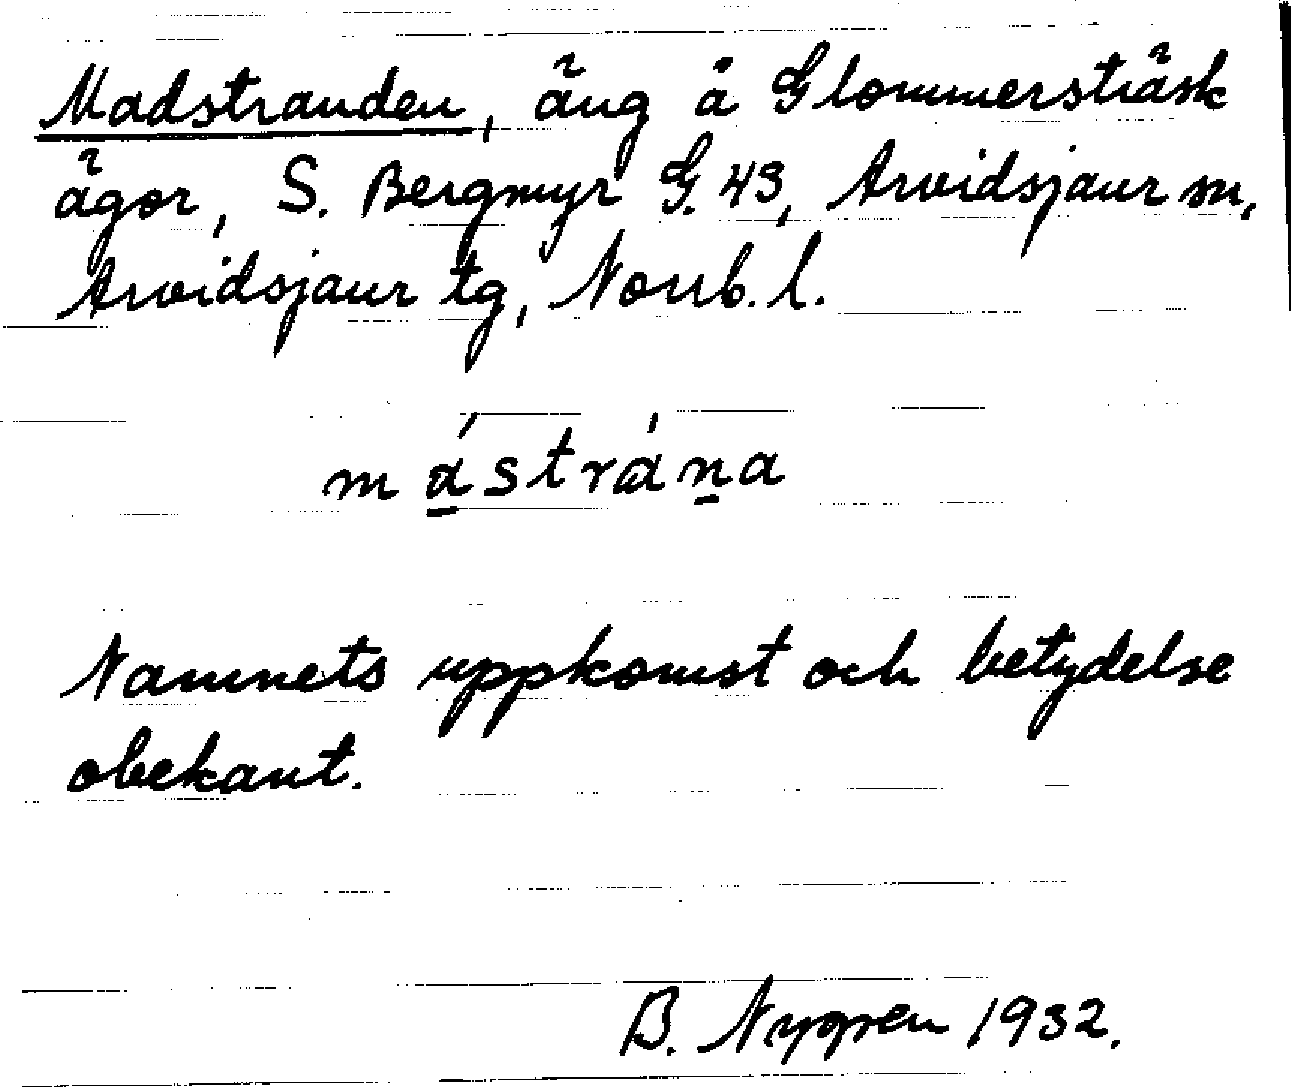 Madstranden, äng å Glommersträsk
ägor, S. Bergmyr G. 43, Arvidsjaur sn,
Arvidsjaur tg, Norrb. l.
mástráṉa
Namnets uppkomst och betydelse
obekant.
B. Nygren 1932.